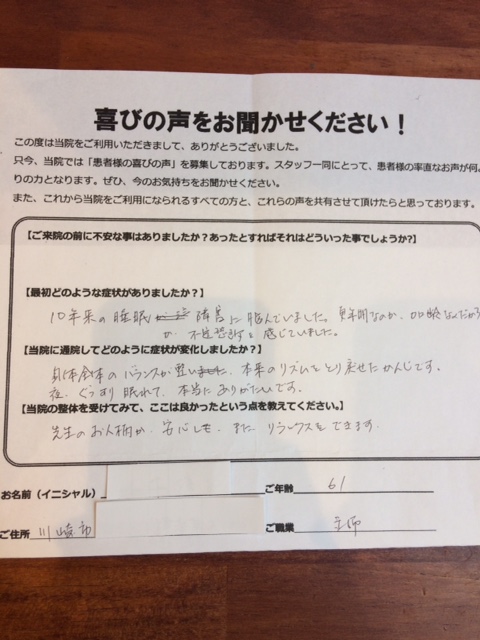 喜びの声をお聞かせください!
この度は当院をご利用いただきまして、ありがとうございました。
只今、当院では「患者様の喜びの声」を募集しております。スタッフ一同にとって、患者様の率直なお声が何
りの力となります。ぜひ、今のお気持ちをお聞かせください。
また、これから当院をご利用になられるすべての方と、これらの声を共有させて頂けたらと思っております。
【ご来院の前に不安な事はありましたか?あったとすればそれはどういった事でしょうか?】
【最初どのような症状がありましたか?】
10年来の睡眠 障害に悩んでいました。更年期なのか、加齢なんだろう
か 不定愁訴を感じていました。
【当院に通院してどのように症状が変化しましたか?】
身体全体のバランスが整い 本来のリズムをとり戻せたかんじです。
夜、ぐっすり眠れて、本当にありがたいです。
【当院の整体を受けてみて、ここは良かったという点を教えてください。】
先生のお人柄か、安心も、また リラックスもできます。
お名前(イニシャル) ご年齢 61
ご住所 川崎市 ご職業 主婦